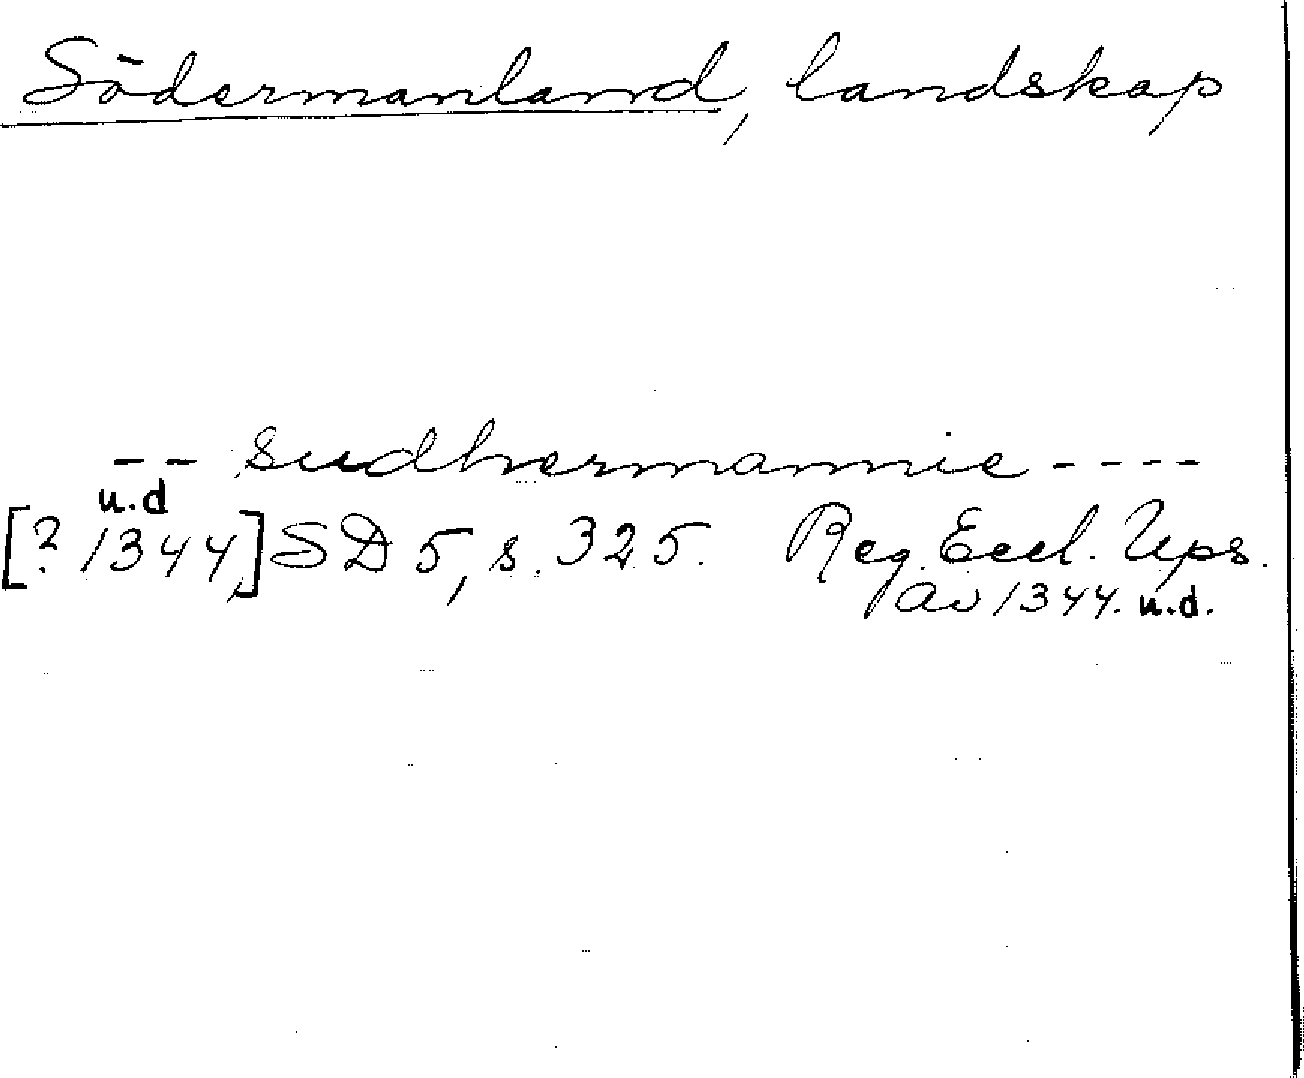 Södermanland, landskap
-- sudhermannie ----
u.d
[? 1344,] SD 5, s. 325. Reg. Eccl. Ups.
av 1344. u.d.